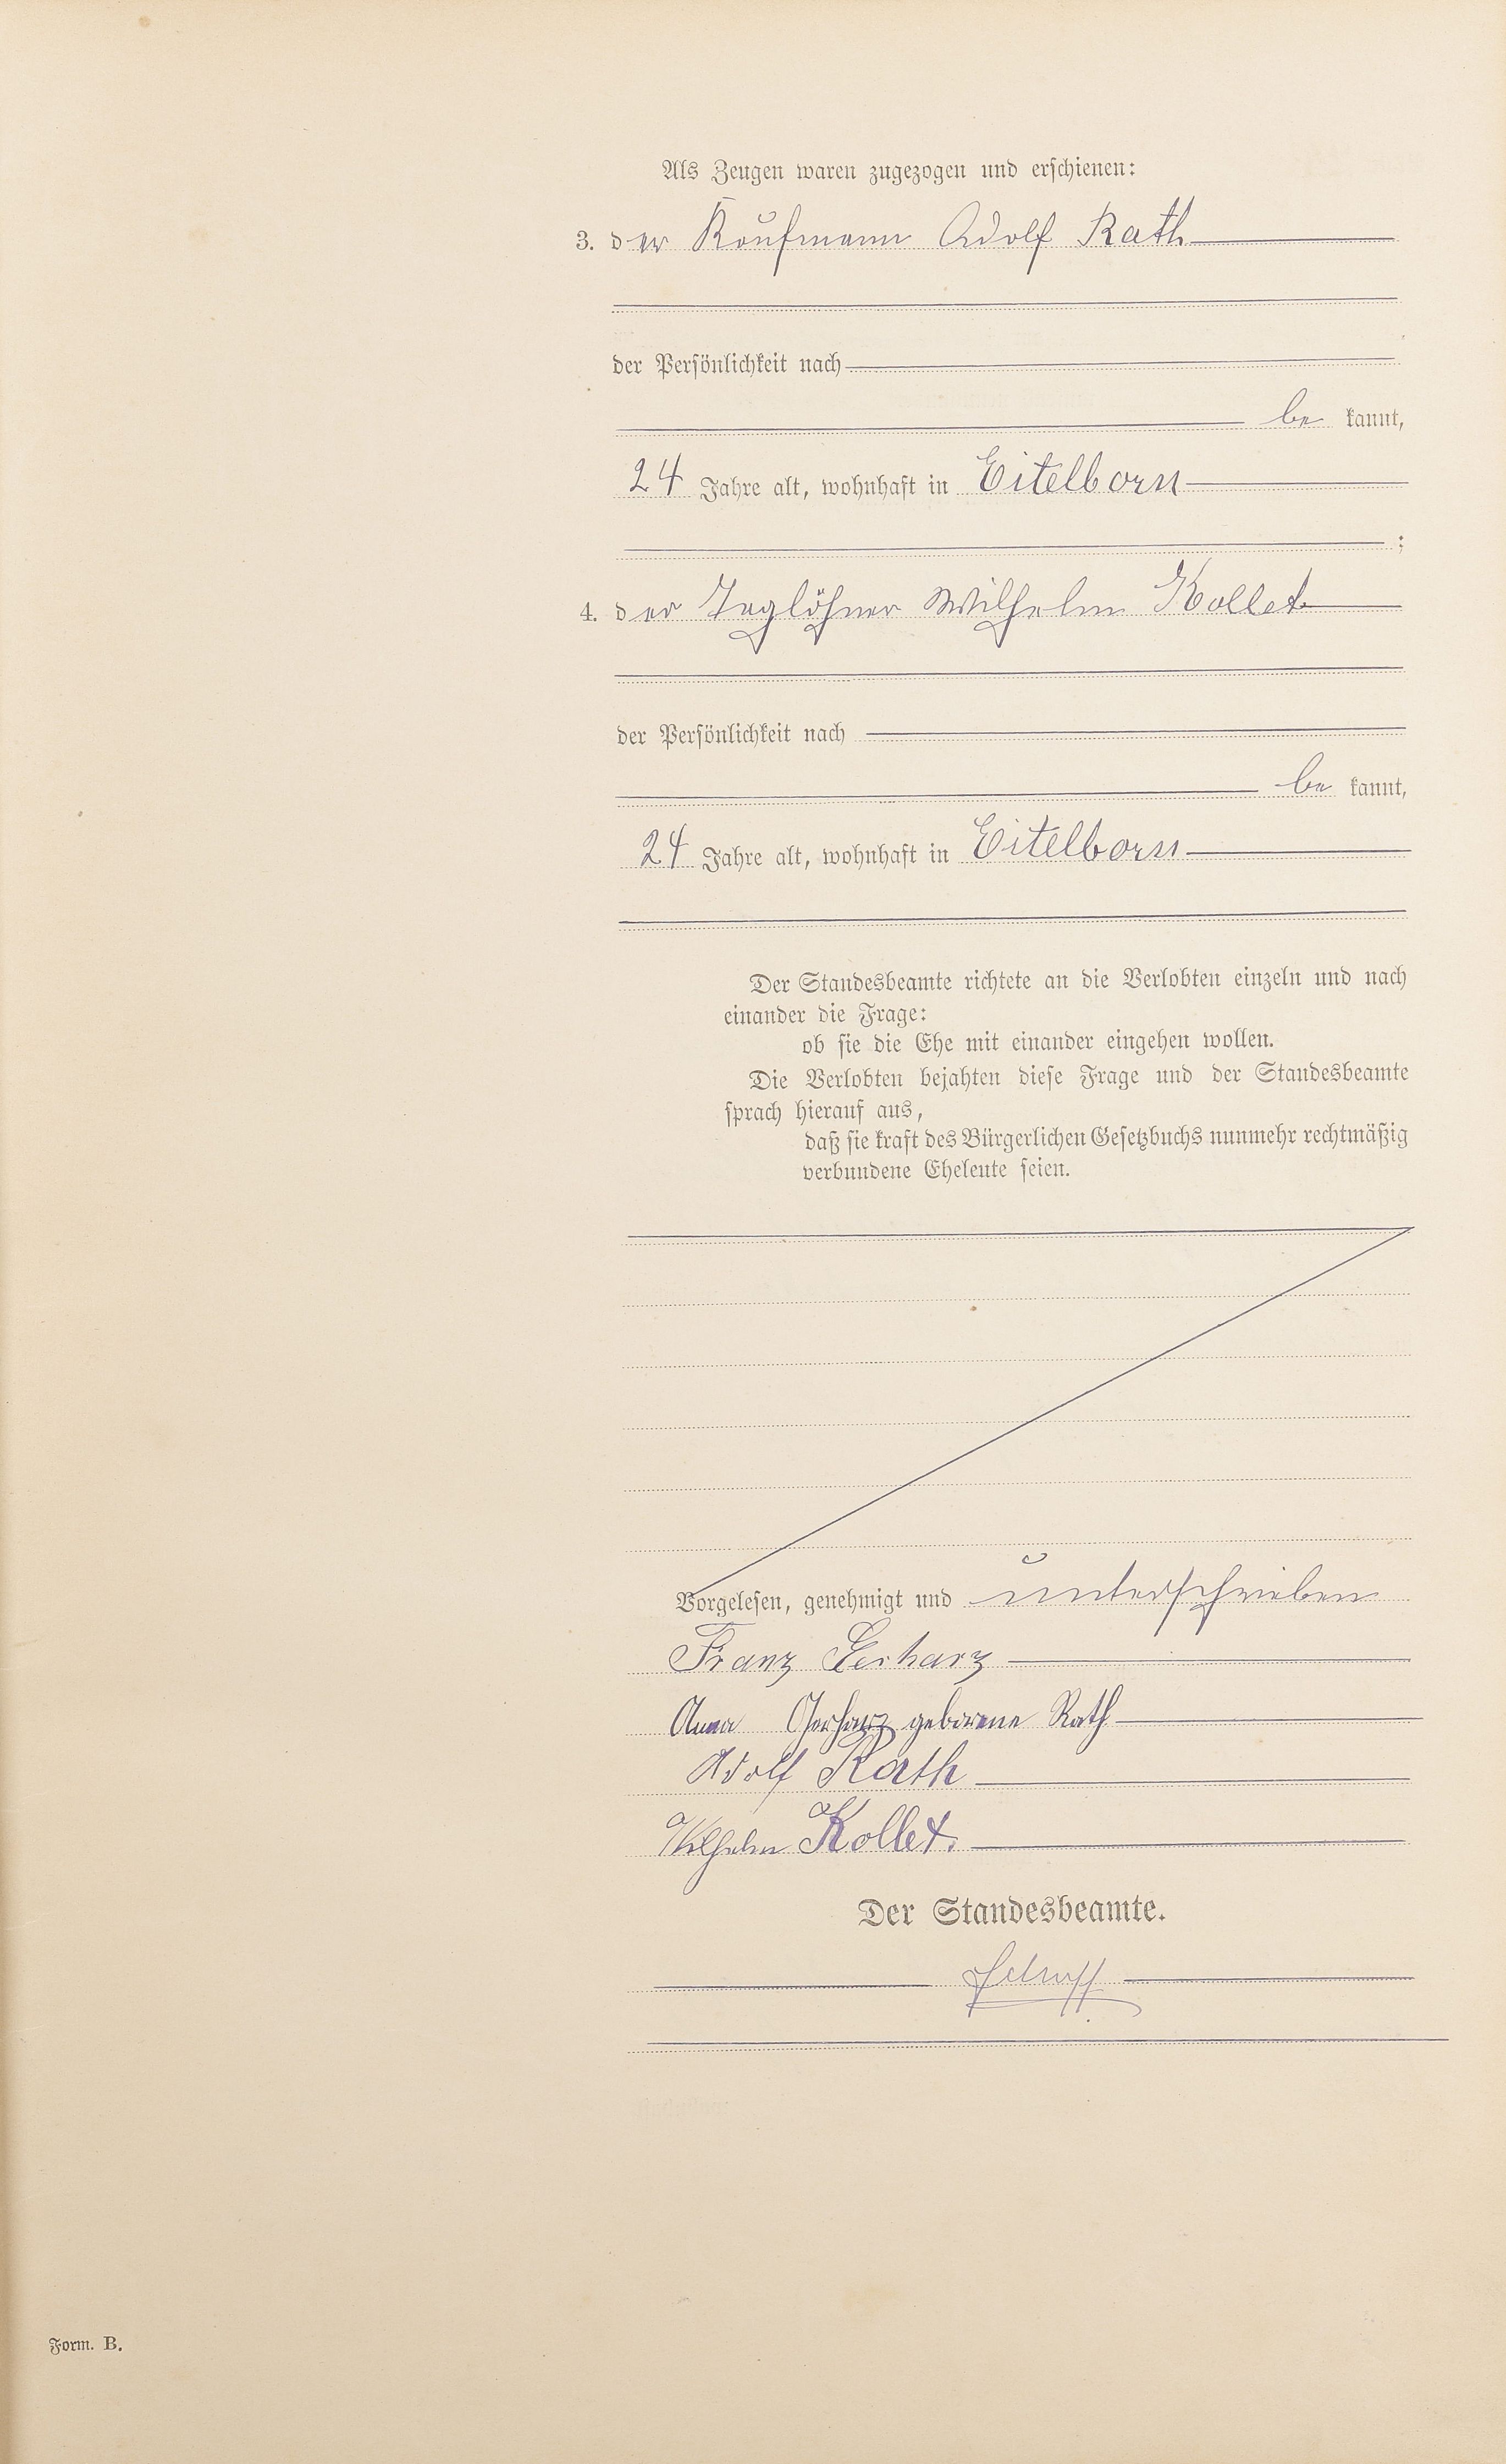 Als Zeugen waren zugezogen und erschienen:
3. der Kaufmann Adolf Rath
der Persönlichkeit nach
be kannt,
24 Jahre alt, wohnhaft in Eitelborn
;
4. der Taglöhner Wilhelm Kollet
der Persönlichkeit nach
be kannt,
24 Jahre alt, wohnhaft in Eitelborn
Der Standesbeamte richtete an die Verlobten einzeln und nach
einander die Frage:
ob sie die Ehe mit einander eingehen wollen.
Die Verlobten bejahten diese Frage und der Standesbeamte
sprach hierauf aus,
daß sie kraft des Bürgerlichen Gesetzbuchs nunmehr rechtmäßig
verbundene Eheleute seien.
Vorgelesen, genehmigt und unterschrieben
Franz Gerharz
Anna Gerharz geborene Rath
Adolf Rath
Wilhelm Kollet.
Der Standesbeamte.
Form. B.